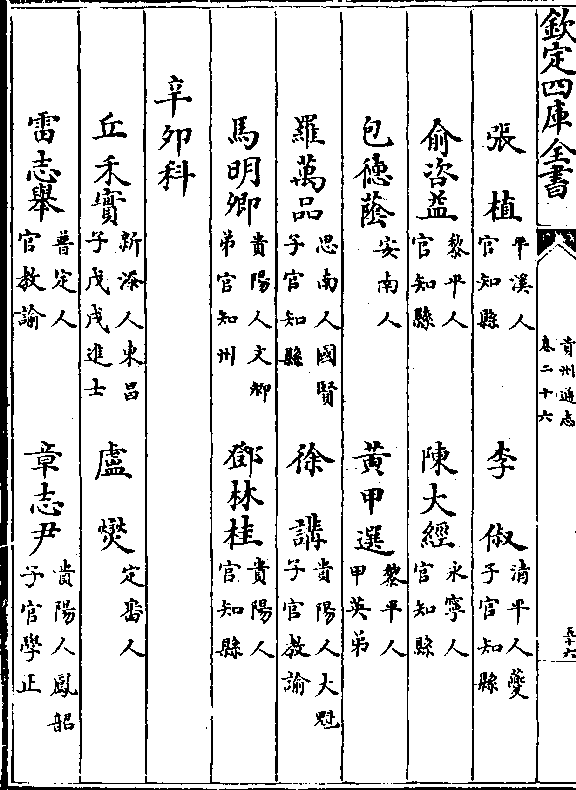 欽定四庫全書
貴州通志
卷二十六
五十六
張植 平溪人官知縣 李俶 清平人夔子官知縣
俞咨益 黎平人官知縣 陳大經 永寧人官知縣
包德䕃 安南人 黃甲選 黎平人甲英弟
羅萬品 思南人國賢子官知縣 徐講 貴陽人大魁子官教諭
馬明卿 貴陽人文卿弟官知州 鄧林桂 貴陽人官知縣
辛卯科
丘禾實 新添人東昌子戊戌進士 盧爕 定番人
雷志舉 普定人官教諭 章志尹 貴陽人鳳韶子官學正